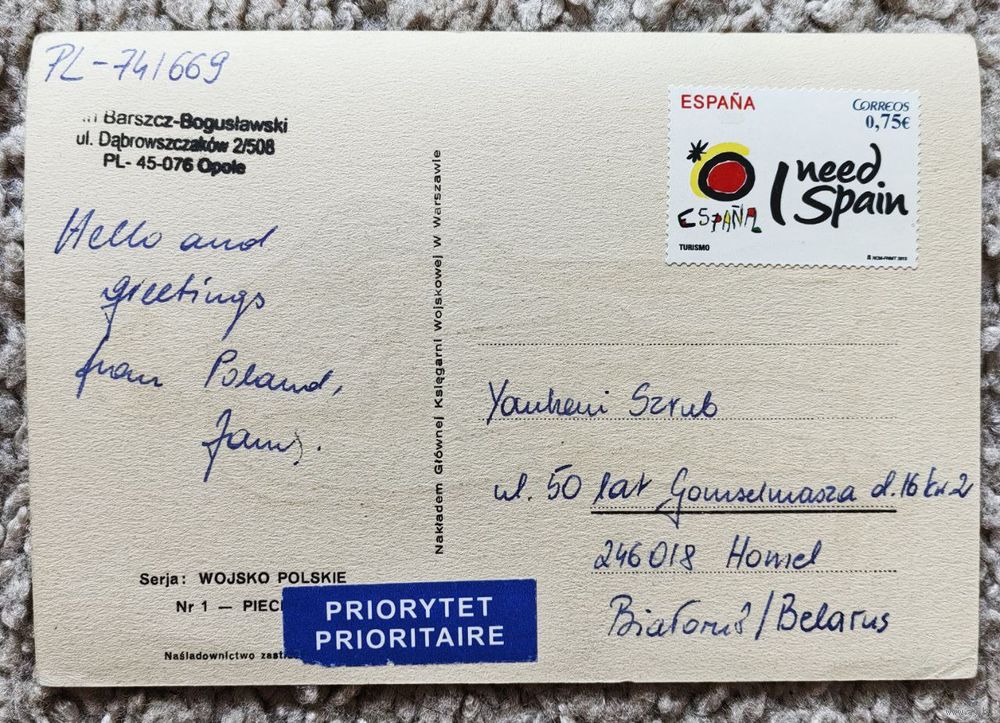 PL-741669
Barszcz-Bogusławski
ul. Dąbrowszczaków 2/508
PL- 45-076 Opole
Hello and
greetings
from Poland,
Serja: WOJSKO POLSKIE
Nr 1 — PIECH
Naśladownictwo zast
PRIORYTET
PRIORITAIRE
Nakładem Głównej Księgarni Wojskowej w Warszawie
ESPAÑA
CORREOS
0,75€
I need
Spain
ESPAÑA
TURISMO
Yauheni Szrub
ul. 50 lat Gomselmasza d.16 kw 2
246018 Homel
Białoruś/Belarus